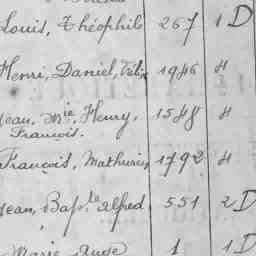 Louis, Théophile 267 1 D
Henri, Daniel, Félix 1946 4
Jean, Mie, Henry, 1548 4
François.
François, Mathurin, 1792 4
Jean, Bapte alfred, 551 2 D
Marie ange 1 1 D